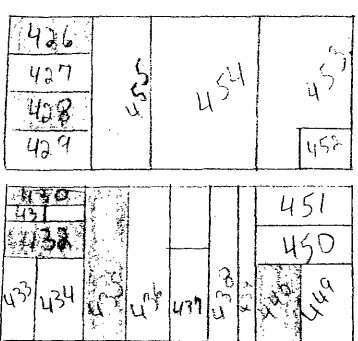 426
427
428
429
455
454
453
452
430
431
432
433
434
435
436
437
438
451
450
448
449